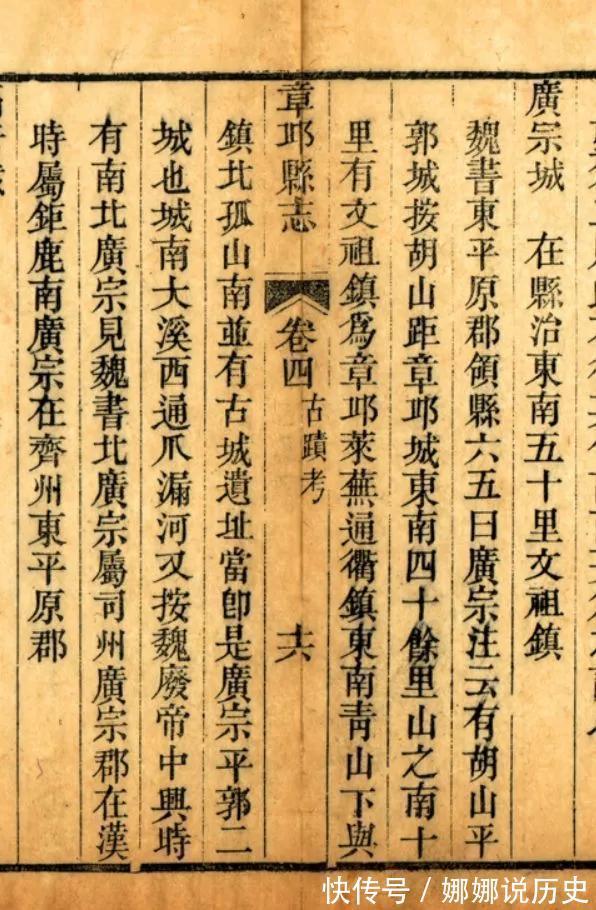 廣宗城　在縣治東南五十里文祖鎮
魏書東平原郡領縣六五曰廣宗注云有胡山平
郭城按胡山距章邱城東南四十餘里山之南十
里有文祖鎮為章邱萊蕪通衢鎮東南青山下與
章邱縣志
卷四
古蹟考
十六
鎮北孤山南並有古城遺址當即是廣宗平郭二
城也城南大溪西通爪漏河又按魏廢帝中興時
有南北廣宗見魏書北廣宗屬司州廣宗郡在漢
時屬鉅鹿南廣宗在齊州東平原郡
快传号／娜娜说历史